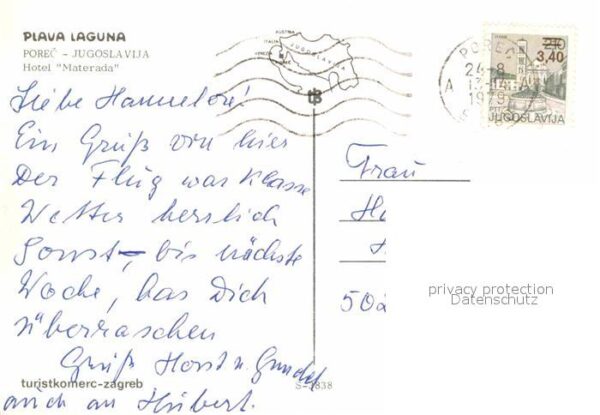 PLAVA LAGUNA
POREČ – JUGOSLAVIJA
Hotel "Materada"
AUSTRIA
ITALIA
JUGOSLAVIJA
POREČ
24-8
1979
210
3,40
PTT
JUGOSLAVIJA
Liebe Hannelore!
Ein Gruß von hier
Der Flug was Klasse
Wetter herrlich
Sonst, bis nächste
Woche, las Dich
überraschen
Gruß Horst u. Gundel
auch an Hubert.
Frau
502
privacy protection
Datenschutz
turistkomerc-zagreb
S-1838